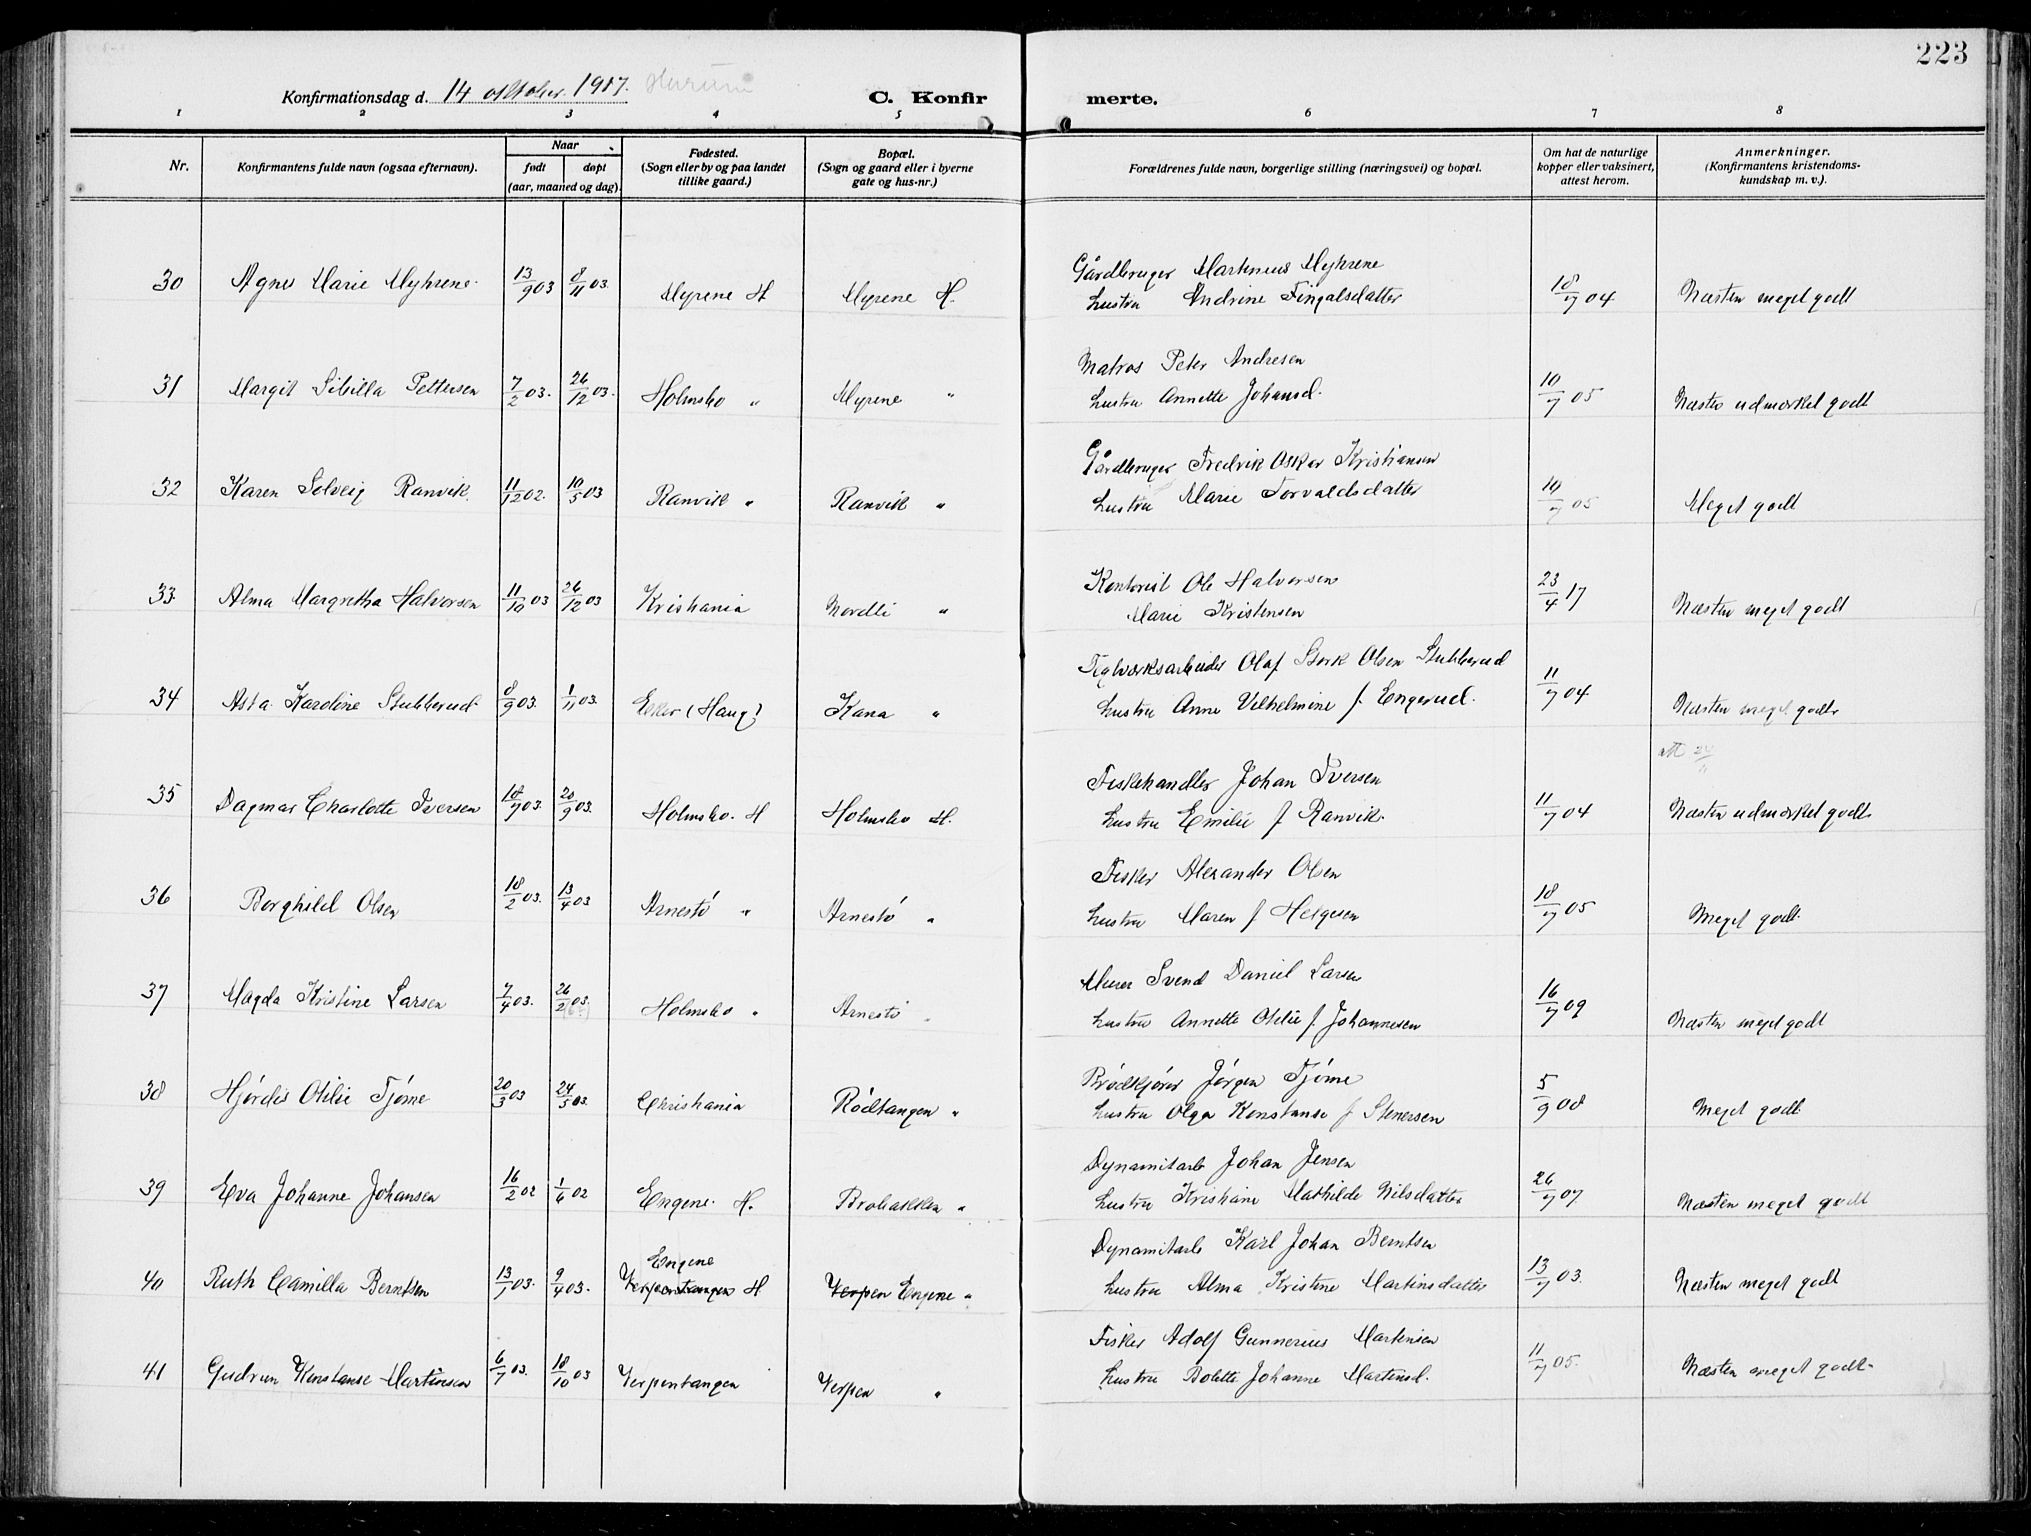 223
Konfirmationsdag d. 14 oktober 1917. Hurum
C. Konfirmerte.
1 2 3 4 5 6 7 8
Nr. Konfirmantens fulde navn (ogsaa efternavn). Naar født døpt (aar, maaned og dag). Fødested. (Sogn eller by og paa landet tillike gaard.) Bopæl. (Sogn og gaard eller i byerne gate og hus-nr.) Forældrenes fulde navn, borgerlige stilling (næringsvei) og bopæl. Om hat de naturlige kopper eller vaksinert, attest herom. Anmerkninger. (Konfirmantens kristendoms-kundskap m. v.).
30 Agnes Marie Myhrene 13/9 03 8/11 03. Myrene H Myrene H. Gårdbruger Martenius Myhrene
hustru Andrine Fingalsdatter 18/7 04 Næsten meget godt
31 Margit Sibilla Pettersen 7/2 03. 26/12 03. Holmsbo " Myrene " Matros Peter Andresen
hustru Annette Johansd. 10/7 05 Næsten udmerket godt
32 Karen Solveig Ranvik 11/12 02. 10/5 03 Ranvik " Ranvik " Gårdbruger Fredrik Oskar Kristiansen
hustru Marie Torvaldsdatter 10/7 05 Meget godt
33 Alma Margretha Halvorsen 11/10 03 26/12 03 Kristiania Nordli " Kontorist Ole Halvorsen
Marie Kristensen 23/4 17 Næsten meget godt
34 Asta Karoline Stubberud 8/9 03. 1/11 03. Eker (Haug) Kana " Teglverksarbeider Olaf Stork Olsen Stubberud
hustru Anne Vilhelmine f. Engerud. 11/7 04 Næsten meget godt
35 Dagmar Charlotte Iversen 18/7 03. 20/9 03. Holmsbo. H Holmsbo H. Fiskehandler Johan Iversen
hustru Emilie f Ranvik. 11/7 04 Næsten udmerket godt
36 Borghild Olsen 18/2 03. 13/4 03 Arnestø " Arnestø " Fisker Alexander Olsen
hustru Maren f Helgesen 18/7 05 Meget godt.
37 Magda Kristine Larsen 7/4 03. 26/2 03. Holmsbo " Arnestø " Murer Svend Daniel Larsen
hustru Annette Otilie f. Johannesen 16/7 09 Næsten meget godt
38 Hjørdis Otilie Tjøme 20/3 03 24/5 03. Christiania Rødtangen " Brødkjører Jørgen Tjøme
hustru Olga Konstanse f Stenersen 5/9 08 Meget godt.
39 Eva Johanne Johansen 16/2 02 1/6 02 Engene. H. Brobakken " Dynamitarb Johan Jensen
hustru Kristiane Mathilde Nilsdatter 26/7 07 Næsten meget godt
40 Ruth Camilla Berntsen 13/1 03. 9/4 03. Engene Verpentangen H Verpen Engene " Dynamitarb Karl Johan Berntsen
hustru Alma Kristine Martinsdatter 13/7 03. Næsten meget godt
41 Gudrun Konstanse Martinsen 6/7 03. 18/10 03 Verpentangen Verpen " Fisker Adolf Gunnerius Martinsen
hustru Bolette Johanne Martensd. 11/7 05. Næsten meget godt